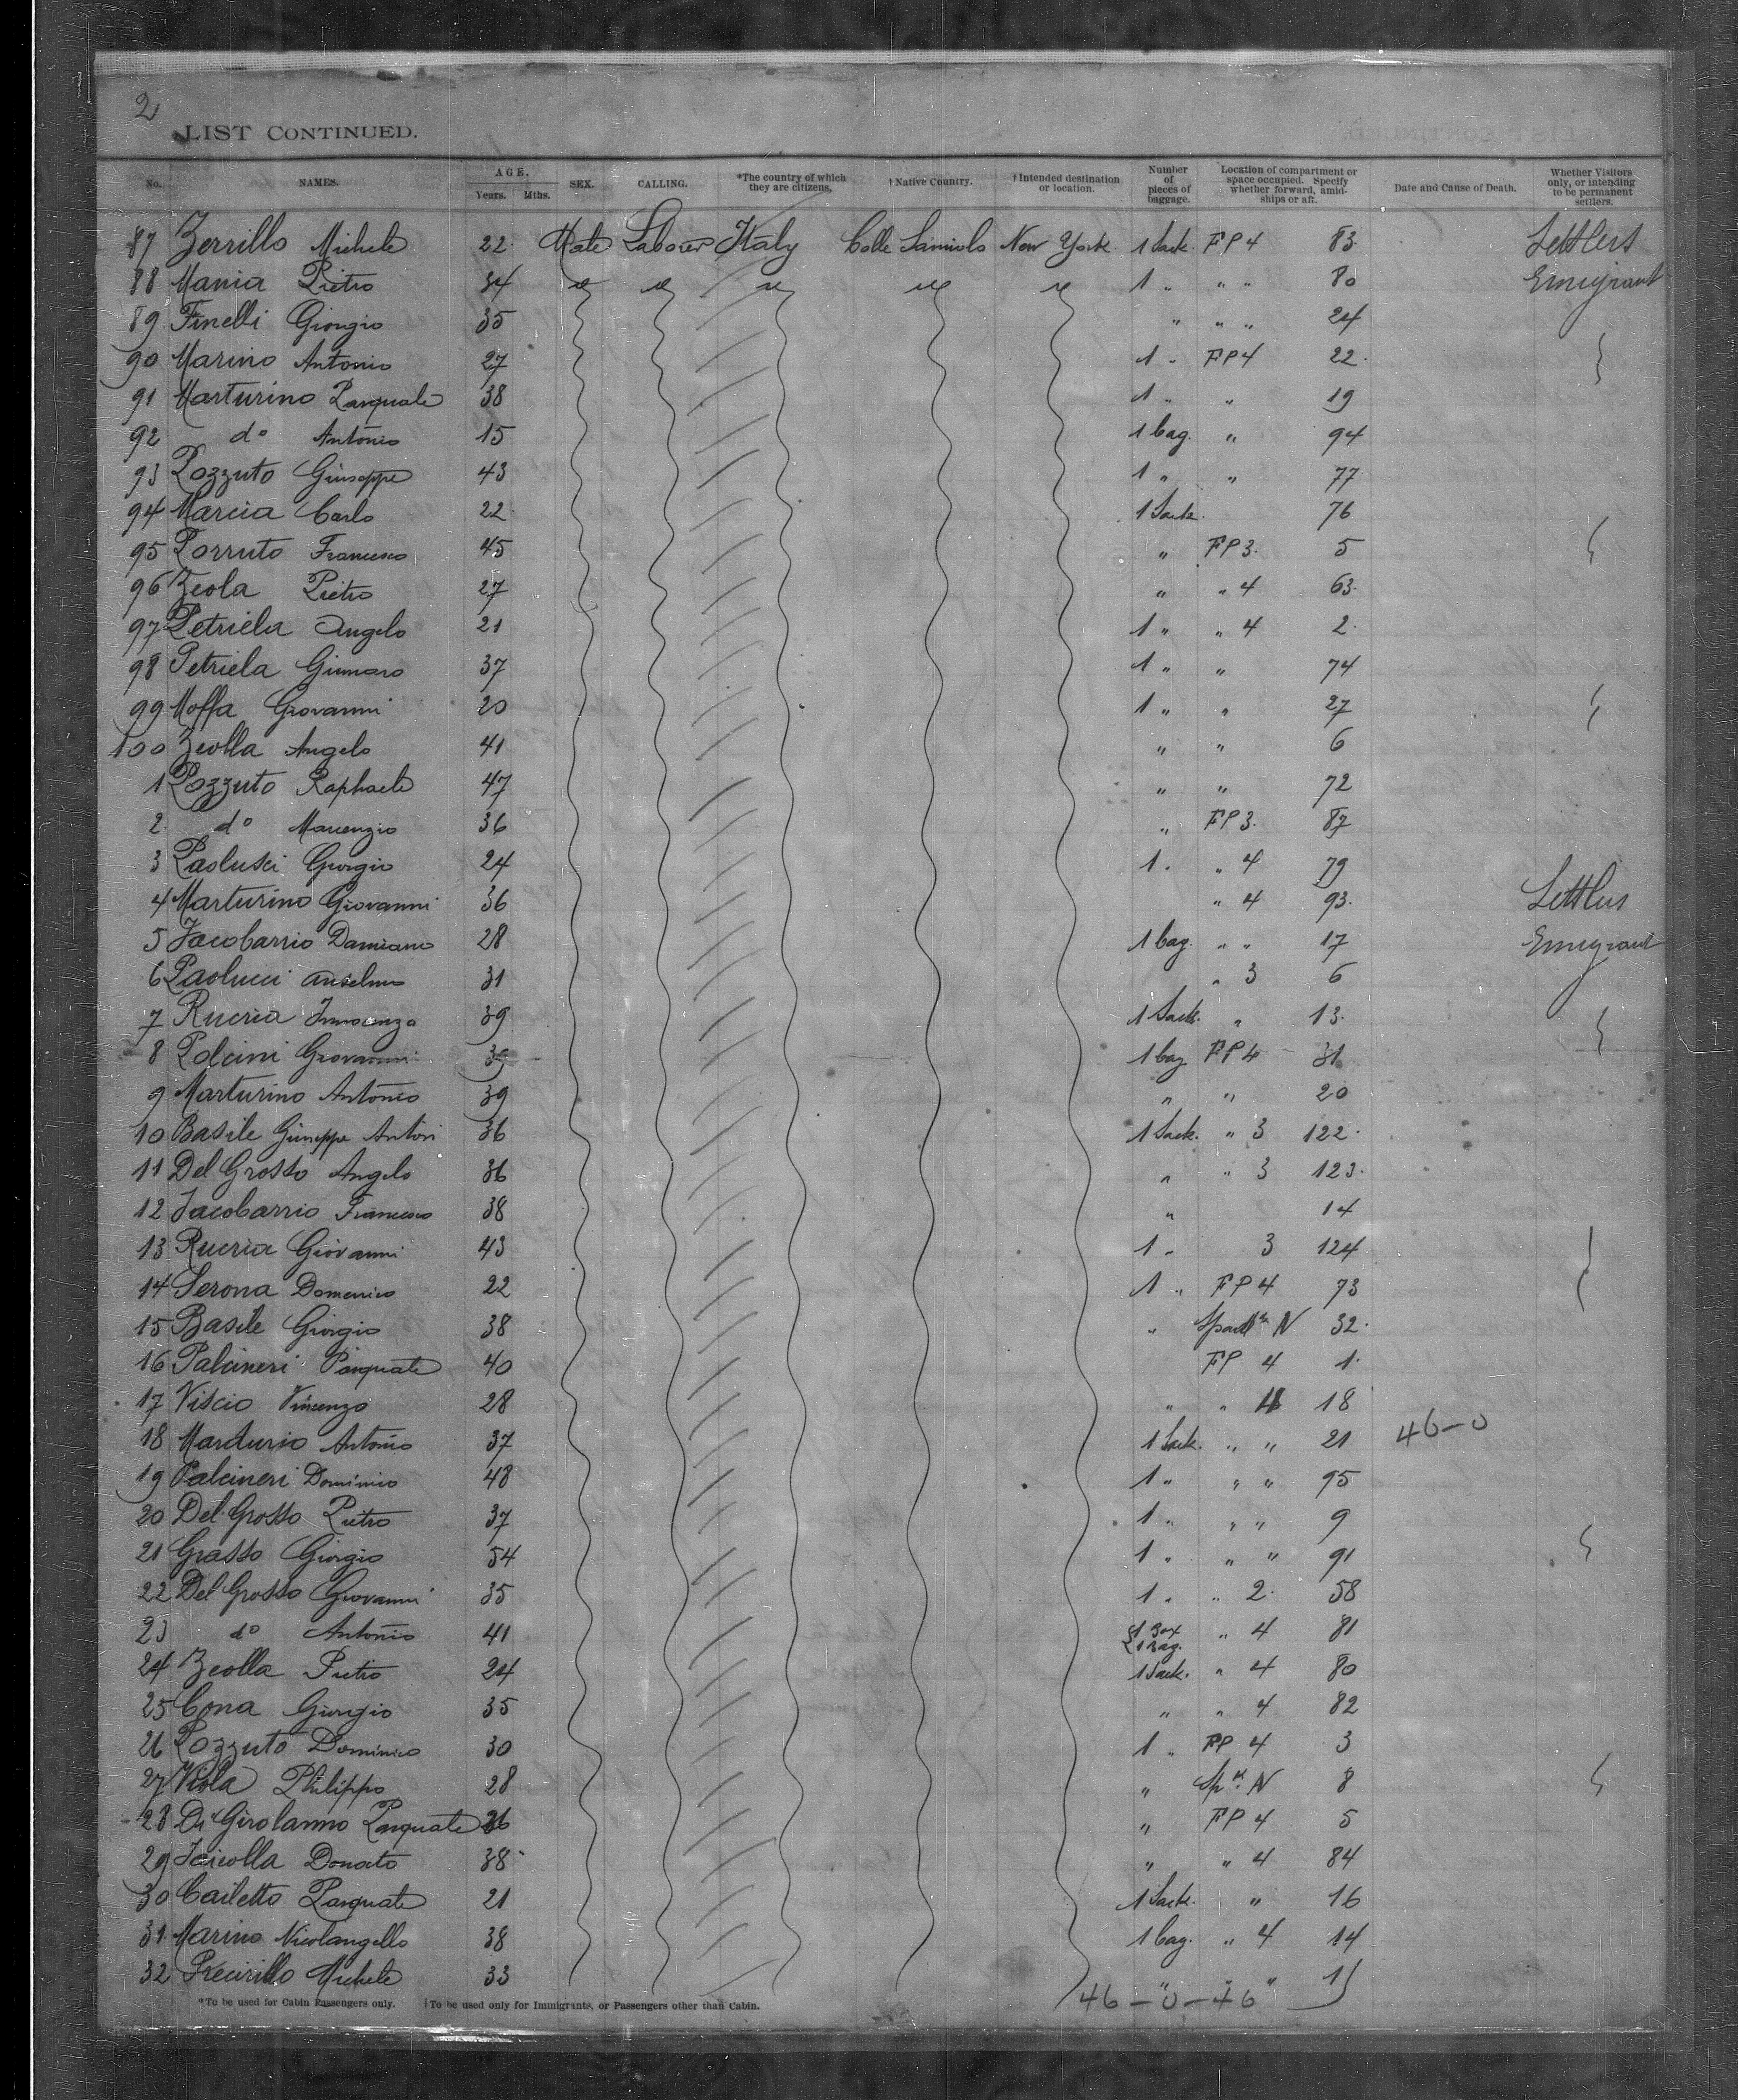 2
LIST CONTINUED.
No. NAMES. AGE. Years. Mths. SEX. CALLING. *The country of which they are citizens. †Native Country. †Intended destination or location. Number of pieces of baggage. Location of compartment or space occupied. Specify whether forward, amidships or aft. Date and Cause of Death. Whether Visitors only, or intending to be permanent settlers.
87 Zerrillo Michele 22 Male Laborer Italy Colle Sannio New York 1 Sack FP 4 83 Settlers
88 Mania Pietro 34 1 " " " 80 Emigrant
89 Finelli Giorgio 35 " " " 24
90 Marino Antonio 27 1 " FP 4 22
91 Marturino Pasquale 38 1 " " 19
92 do Antonio 15 1 bag. " 94
93 Pozzuto Giuseppe 43 1 " " 77
94 Marcia Carlo 22 1 Sack 76
95 Porruto Francesco 45 " FP 3. 5
96 Zeola Pietro 27 " " 4 63
97 Petriela Angelo 21 1 " " 4 2
98 Petriela Ginnaro 37 1 " " 74
99 Moffa Giovanni 20 1 " " 27
100 Zeolla Angelo 41 " " 6
1 Pozzuto Raphaele 47 " " 72
2 do Marenzio 36 " FP 3. 87
3 Paolusci Giorgio 24 1 " " 4 79
4 Marturino Giovanni 36 " 4 93 Settlers
5 Jacobarrio Damiano 28 1 bag. " " 17 Emigrant
6 Paolucci Anselmo 31 " 3 6
7 Rucria Innocenzo 39 1 Sack. " 13
8 Polcini Giovanni 39 1 bag FP 4 31
9 Marturino Antonio 39 " " 20
10 Basile Giuseppe Anton 36 1 Sack. " 3 122
11 Del Grosso Angelo 36 " " 3 123
12 Jacobarrio Francesco 38 " 14
13 Rucria Giovanni 43 1 " 3 124
14 Serona Domenico 22 1 " FP 4 73
15 Basile Giorgio 38 " N 32
16 Palcineri Pasquale 40 FP 4 1
17 Viscio Vincenzo 28 " " 4 18
18 Marturio Antonio 37 1 Sack. " " 21 46-0
19 Palcineri Dominico 48 1 " " " 95
20 Del Grosso Pietro 37 1 " " " 9
21 Grasso Giorgio 54 1 " " " 91
22 Del Grosso Giovanni 35 1 " " 2 58
23 do Antonio 41 1 Box 1 Bag. " 4 81
24 Zeolla Pietro 24 1 Sack. " 4 80
25 Cona Giorgio 35 " " 4 82
26 Pozzuto Dominico 30 1 " FP 4 3
27 Viola Philippo 28 " N 8
28 Di Girolammo Pasquale 26 " FP 4 5
29 Donato 38 " " 4 84
30 Cailetto Pasquale 21 1 Sack. " 16
31 Marino Nicolangello 38 1 bag. " 4 14
32 Michele 33 " " "
46-0-46
*To be used for Cabin Passengers only. †To be used only for Immigrants, or Passengers other than Cabin.